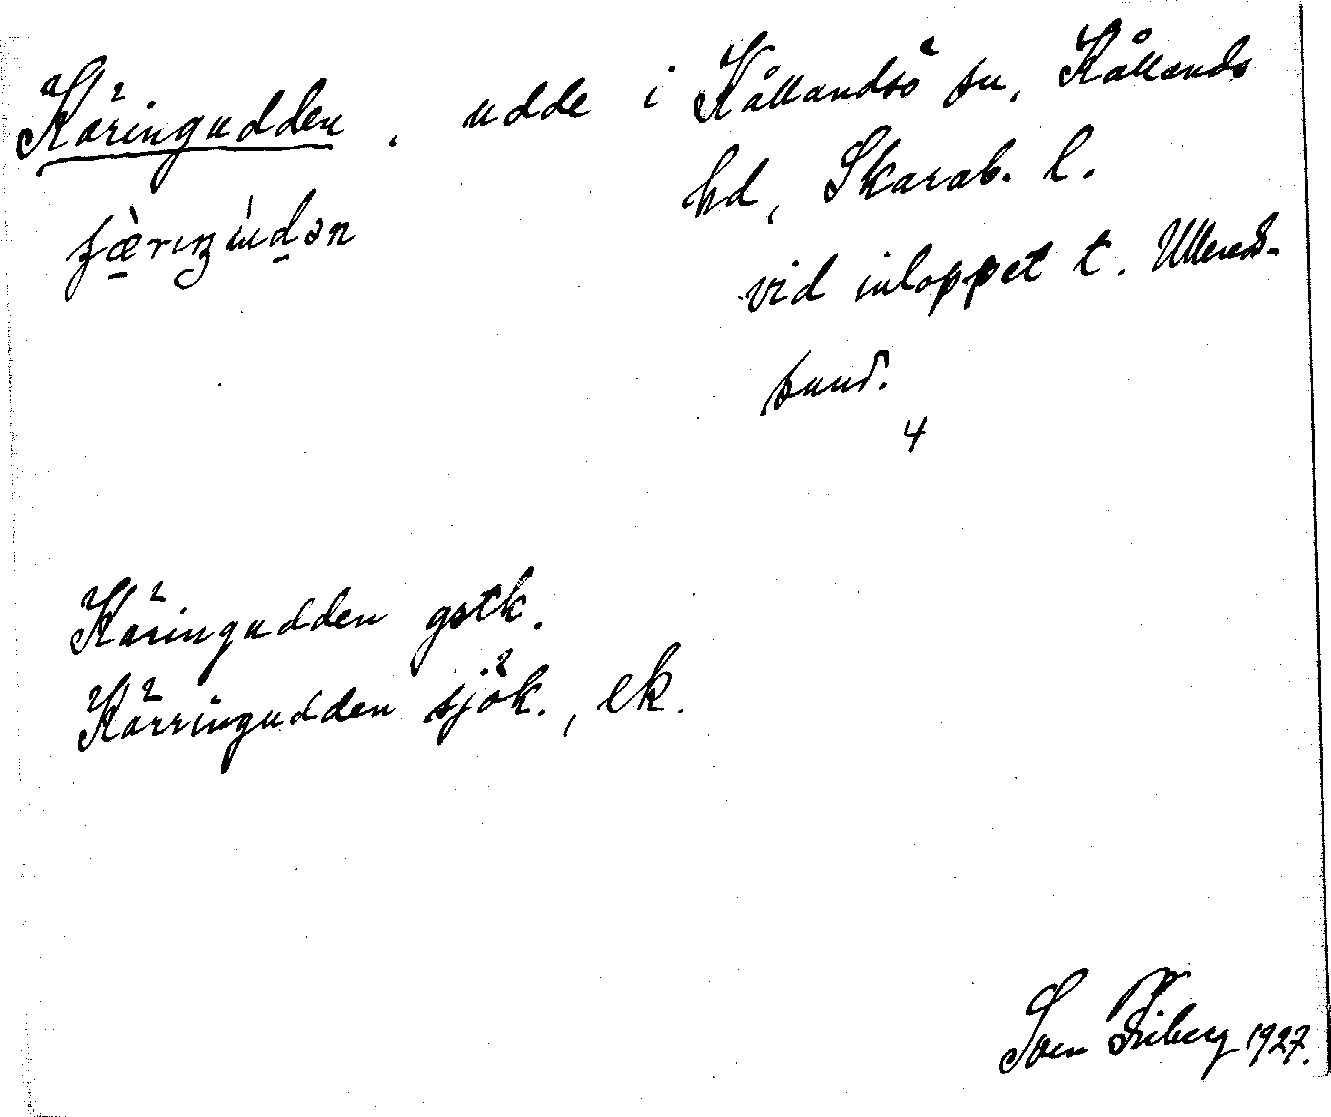 Käringudden, udde i Kållandsö sn, Kållands
hd, Skarab. l.
vid inloppet t. Ullereds-
sund.
4
Käringudden gstk.
Kärringudden sjök., ek.
Sven Friberg 1927.